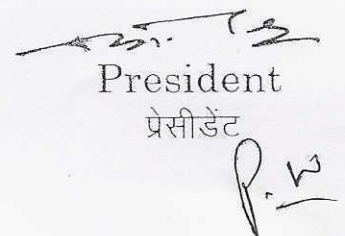 President
प्रेसीडेंट
P. W